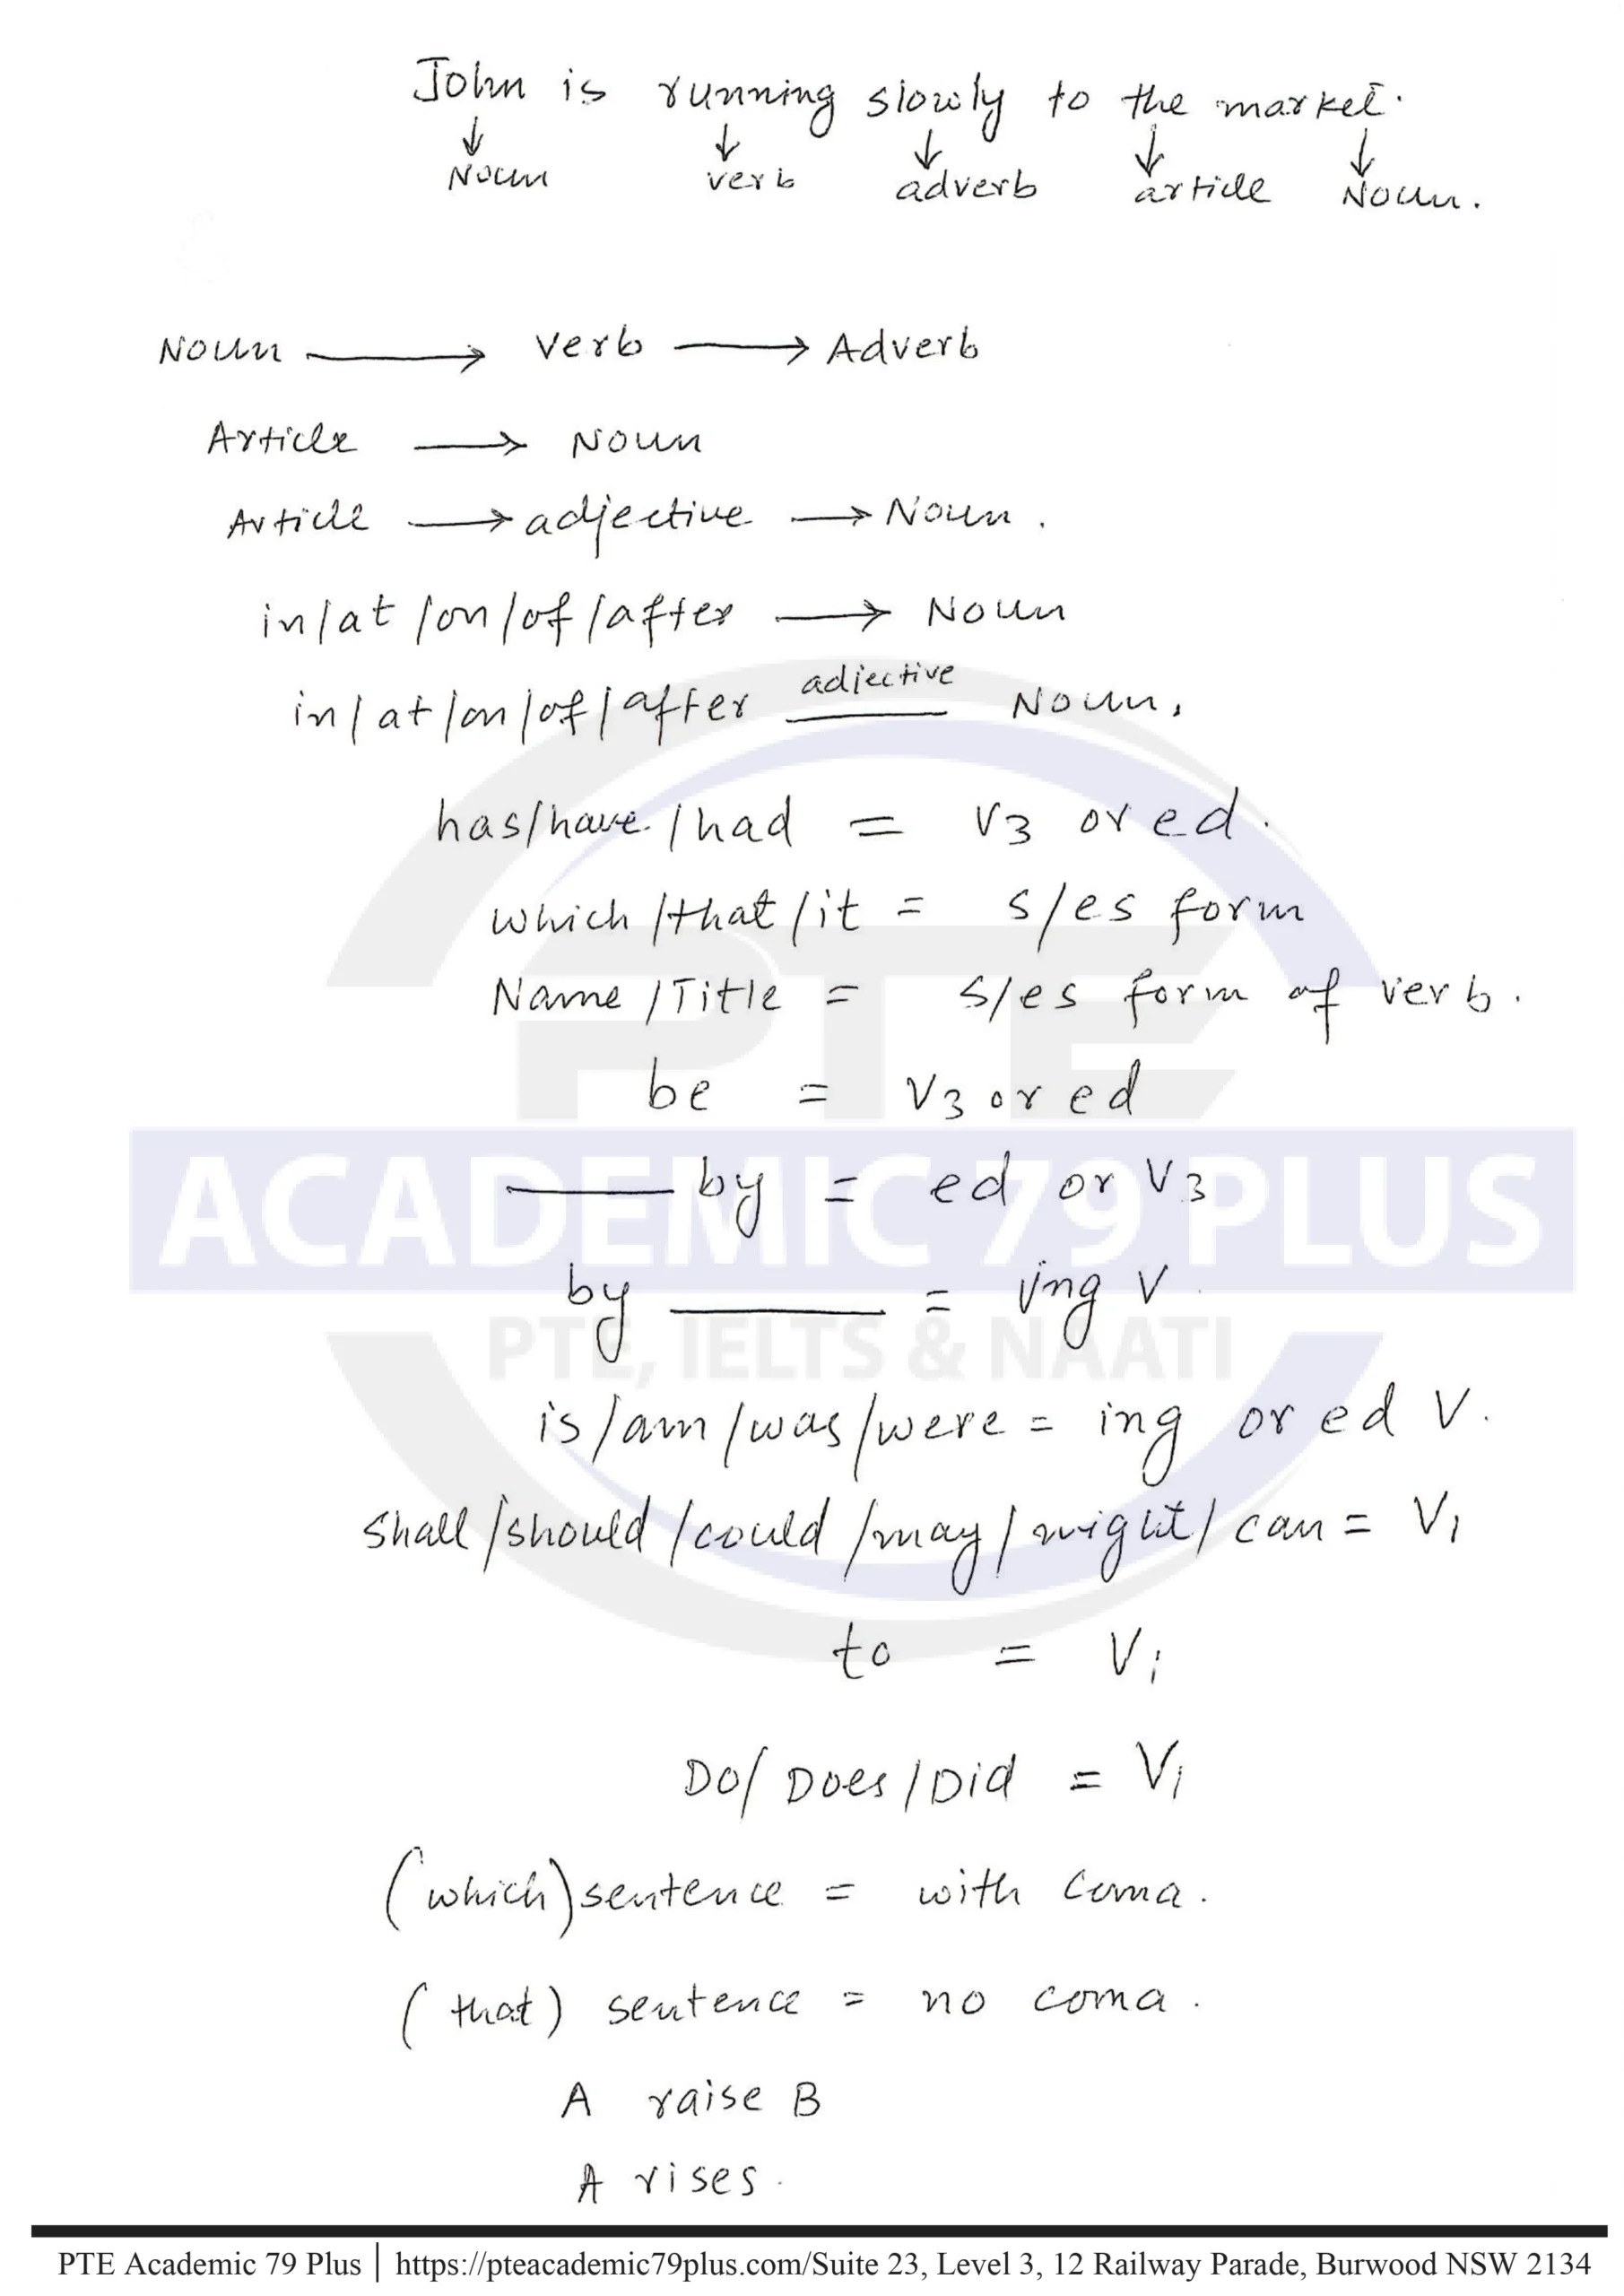 John is running slowly to the market.
↓ ↓ ↓ ↓ ↓
Noun verb adverb article Noun.
Noun ⟶ Verb ⟶ Adverb
Article ⟶ Noun
Article ⟶ adjective ⟶ Noun.
in/at/on/of/after ⟶ Noun
in/at/on/of/after adjective Noun.
has/have/had = V3 or ed.
which/that/it = s/es form
Name/Title = s/es form of verb.
be = V3 or ed
PTE
____ by = ed or V3
ACADEMIC 79 PLUS
by ____ = ing V
PTE, IELTS & NAATI
is/am/was/were = ing or ed V.
shall/should/could/may/might/can = V1
to = V1
Do/Does/Did = V1
(which) sentence = with coma.
(that) sentence = no coma.
A raise B
A rises.
PTE Academic 79 Plus | https://pteacademic79plus.com/Suite 23, Level 3, 12 Railway Parade, Burwood NSW 2134